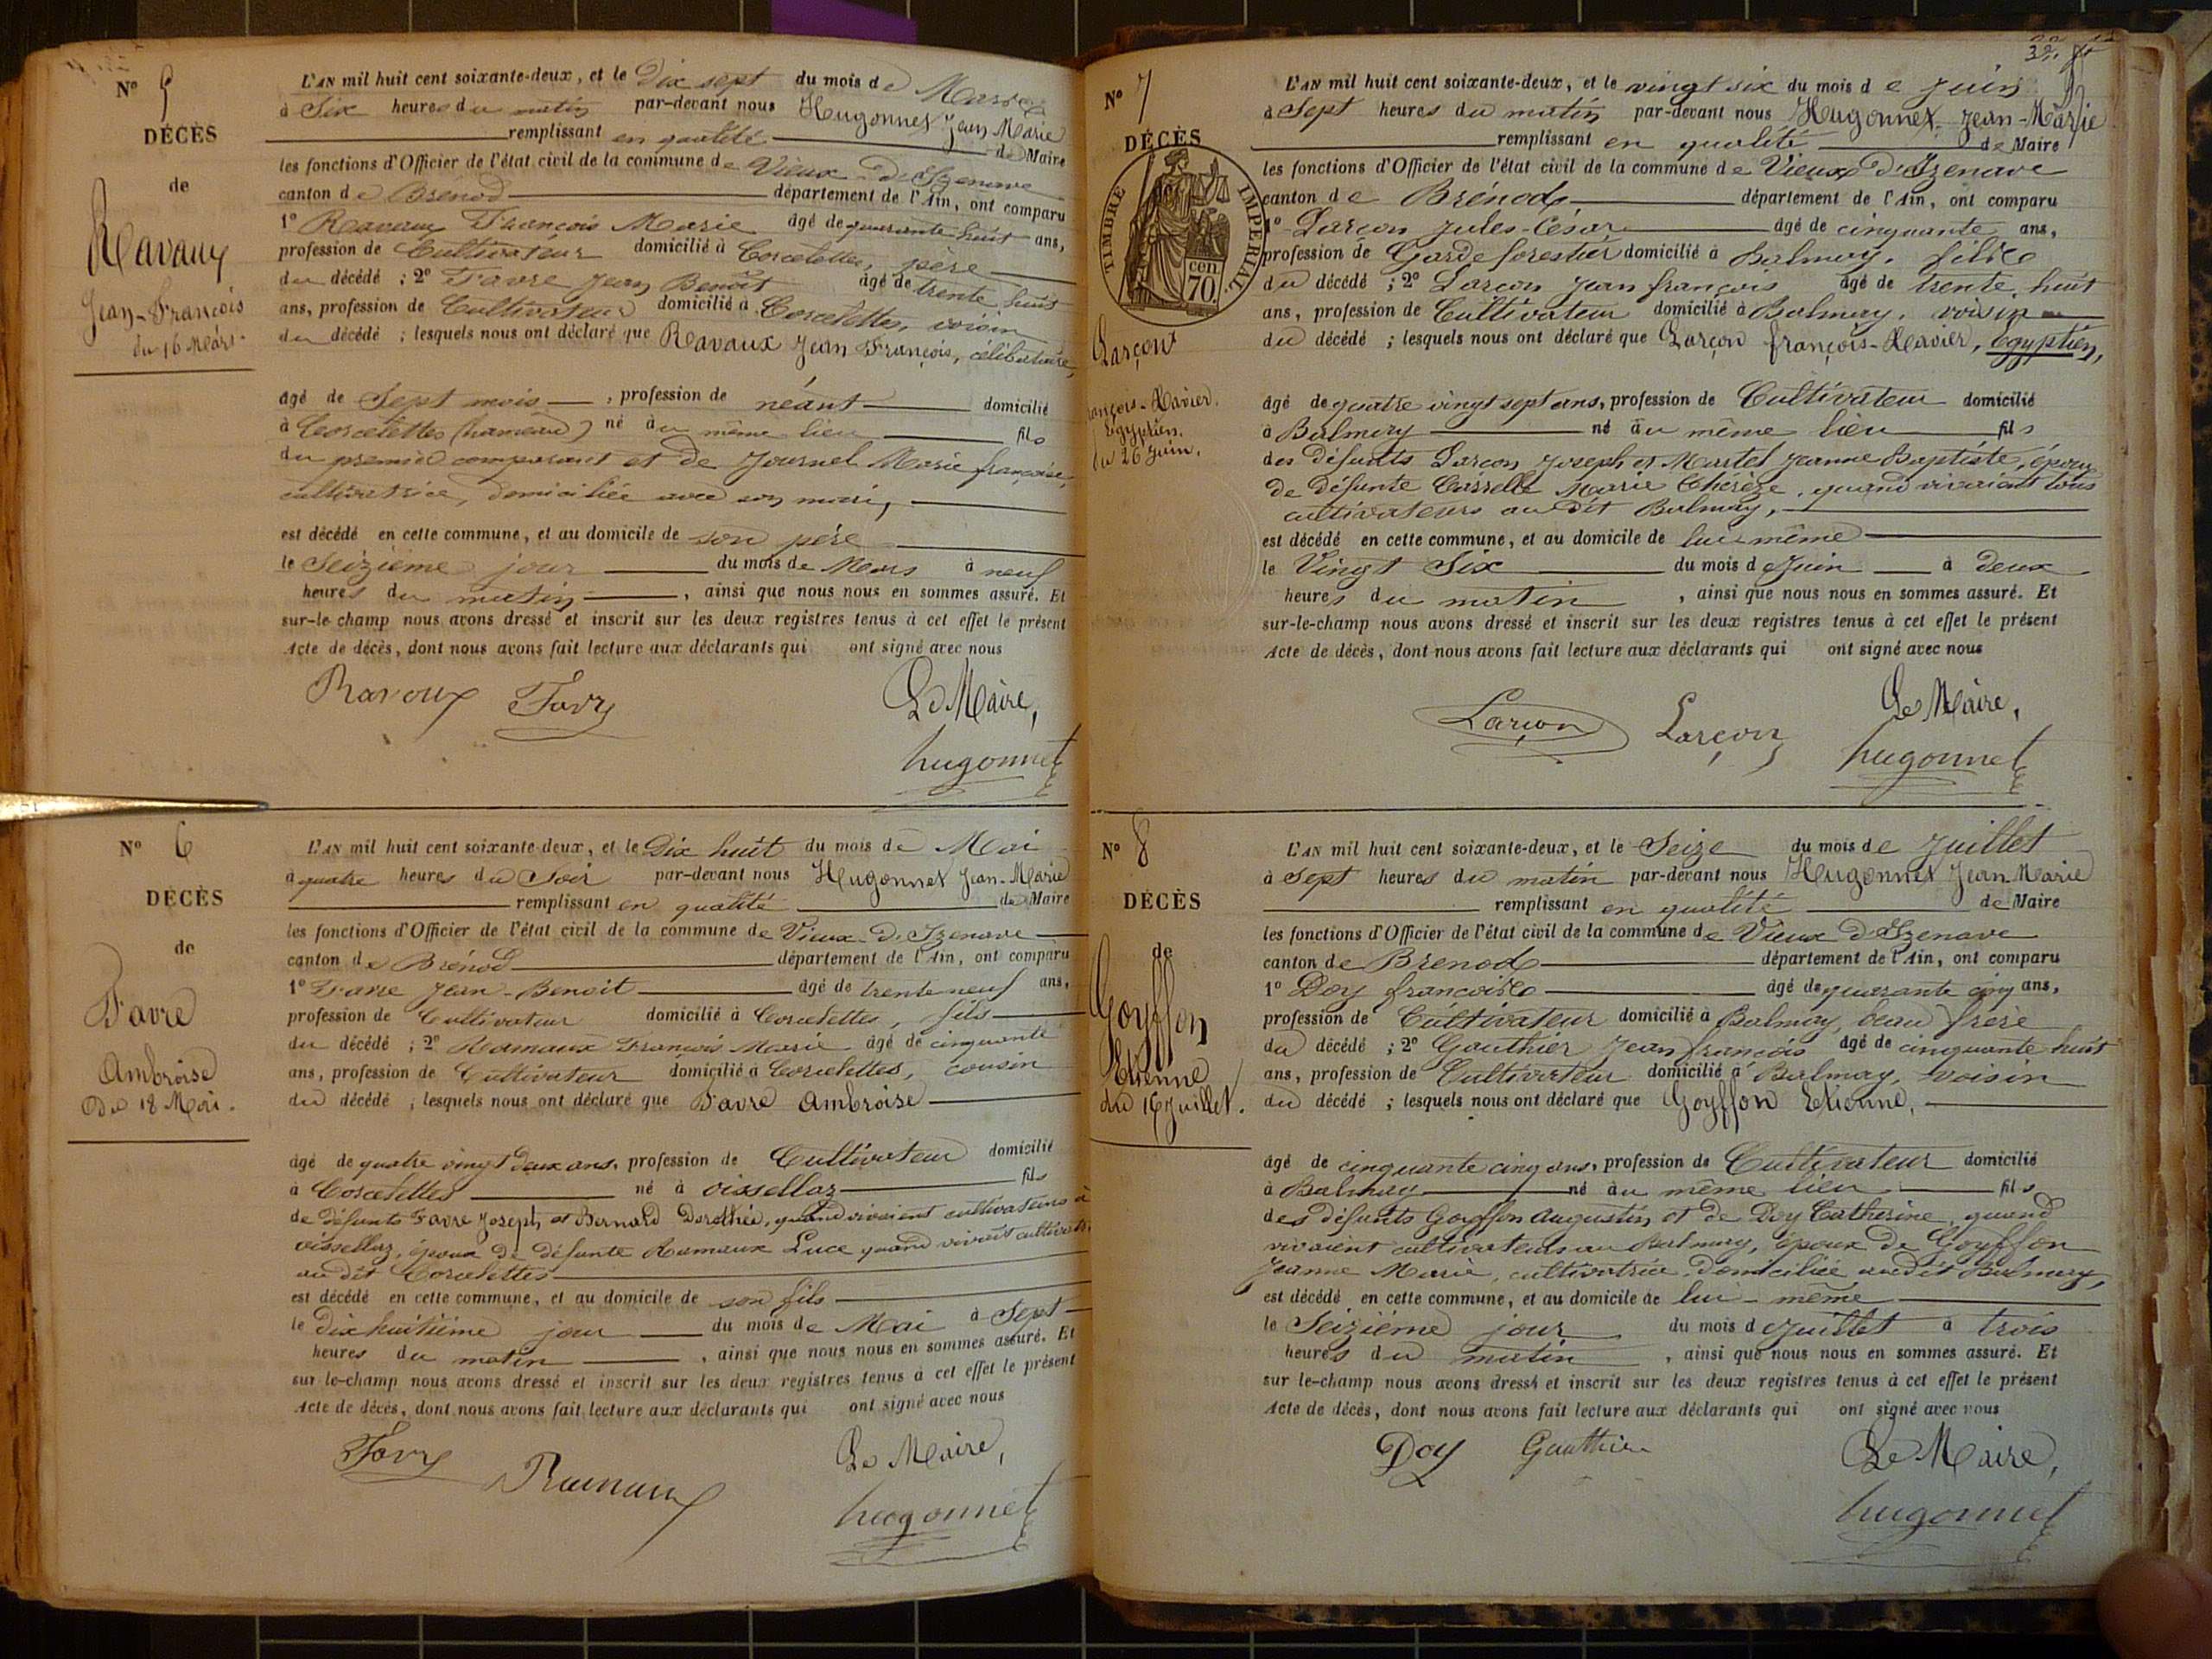 Nº 5
DÉCÈS
de
Ravaux
Jean-François
du 16 Mars.
L'AN mil huit cent soixante-deux, et le Dix sept du mois de Mars
à Six heures du matin par-devant nous Hugonnet Jean Marie
remplissant en qualité de Maire
les fonctions d'Officier de l'état civil de la commune de Vieux-D'Izenave
canton de Brénod département de l'Ain, ont comparu
1º Ravaux François Marie âgé de quarante huit ans,
profession de Cultivateur domicilié à Corcelettes, père
du décédé ; 2º Favre Jean Benoît âgé de trente huit
ans, profession de Cultivateur domicilié à Corcelettes, voisin
du décédé ; lesquels nous ont déclaré que Ravaux Jean François, célibataire,
âgé de Sept mois, profession de néant domicilié
à Corcelettes (hameau) né au même lieu fils
du premier comparant et de Journel Marie françoise,
cultivatrice, domiciliée avec son mari,
est décédé en cette commune, et au domicile de son père
le Seizième jour du mois de Mars à neuf
heures du matin, ainsi que nous nous en sommes assuré. Et
sur-le-champ nous avons dressé et inscrit sur les deux registres tenus à cet effet le présent
Acte de décès, dont nous avons fait lecture aux déclarants qui ont signé avec nous
Ravoux Favre Le Maire,
hugonnet
Nº 6
DÉCÈS
de
Favre
Ambroise
Du 18 Mai.
L'AN mil huit cent soixante-deux, et le Dix huit du mois de Mai
à quatre heures du Soir par-devant nous Hugonnet Jean-Marie
remplissant en qualité de Maire
les fonctions d'Officier de l'état civil de la commune de Vieux-D'Izenave
canton de Brénod département de l'Ain, ont comparu
1º Favre Jean-Benoît âgé de trente neuf ans,
profession de Cultivateur domicilié à Corcelettes, fils
du décédé ; 2º Ramaux François Marie âgé de cinquante
ans, profession de Cultivateur domicilié à Corcelettes, cousin
du décédé ; lesquels nous ont déclaré que Favre Ambroise
âgé de quatre vingt deux ans, profession de Cultivateur domicilié
à Corcelettes né à oissellaz fils
de défunts Favre Joseph et Bernard Dorothée, quand vivaient cultivateurs à
oissellaz, époux de défunte Ramaux Luce quand vivait cultivatrice
au dit Corcelettes
est décédé en cette commune, et au domicile de son fils
le Dix huitième jour du mois de Mai à Sept
heures du matin, ainsi que nous nous en sommes assuré. Et
sur-le-champ nous avons dressé et inscrit sur les deux registres tenus à cet effet le présent
Acte de décès, dont nous avons fait lecture aux déclarants qui ont signé avec nous
Favre Ramaux Le Maire,
hugonnet
32
Nº 7
DÉCÈS
de
TIMBRE IMPÉRIAL
70 cen
Larçon
François-Xavier.
Egyptien.
du 26 Juin.
L'AN mil huit cent soixante-deux, et le vingt six du mois de Juin
à Sept heures du matin par-devant nous Hugonnet Jean-Marie
remplissant en qualité de Maire
les fonctions d'Officier de l'état civil de la commune de Vieux D'Izenave
canton de Brénod département de l'Ain, ont comparu
1º Larçon Jules-César âgé de cinquante ans,
profession de Garde forestier domicilié à Balmay, fils
du décédé ; 2º Larçon Jean françois âgé de trente huit
ans, profession de Cultivateur domicilié à Balmay, voisin
du décédé ; lesquels nous ont déclaré que Larçon françois-Xavier, Egyptien,
âgé de quatre vingt sept ans, profession de Cultivateur domicilié
à Balmay né au même lieu fils
des défunts Larçon Joseph et Martel Jeanne Baptiste, époux
de défunte Marie Thérèze, quand vivaient tous
cultivateurs au dit Balmay,
est décédé en cette commune, et au domicile de lui-même
le Vingt Six du mois de Juin à deux
heures du matin, ainsi que nous nous en sommes assuré. Et
sur-le-champ nous avons dressé et inscrit sur les deux registres tenus à cet effet le présent
Acte de décès, dont nous avons fait lecture aux déclarants qui ont signé avec nous
Larçon Larçon Le Maire,
hugonnet
Nº 8
DÉCÈS
de
Goyffon
Etienne
du 16 Juillet.
L'AN mil huit cent soixante-deux, et le Seize du mois de Juillet
à Sept heures du matin par-devant nous Hugonnet Jean Marie
remplissant en qualité de Maire
les fonctions d'Officier de l'état civil de la commune de Vieux D'Izenave
canton de Brenod département de l'Ain, ont comparu
1º Doy françois âgé de quarante cinq ans,
profession de Cultivateur domicilié à Balmay, beau frère
du décédé ; 2º Gauthier Jean françois âgé de cinquante huit
ans, profession de Cultivateur domicilié à Balmay, voisin
du décédé ; lesquels nous ont déclaré que Goyffon Etienne,
âgé de cinquante cinq ans, profession de Cultivateur domicilié
à Balmay né au même lieu fils
des défunts Goyffon Augustin et de Doy Catherine, quand
vivaient cultivateurs au Balmay, époux de Goyffon
Jeanne Marie, cultivatrice, domiciliée audit Balmay,
est décédé en cette commune, et au domicile de lui-même
le Seizième jour du mois de Juillet à trois
heures du matin, ainsi que nous nous en sommes assuré. Et
sur le-champ nous avons dressé et inscrit sur les deux registres tenus à cet effet le présent
Acte de décès, dont nous avons fait lecture aux déclarants qui ont signé avec nous
Doy Gauthier Le Maire,
hugonnet